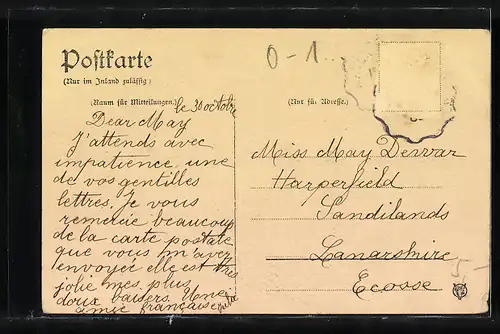 Postkarte
(Nur im Inland zulässig)
0-1..
(Raum für Mitteilungen.)
le 30 octobre
(Nur für Adresse.)
Dear May
J'attends avec
impatience une
de vos gentilles
lettres. Je vous
remercie beaucoup
de la carte postale
que vous m'avez
envoyée elle est très
jolie mes plus
doux baisers. Une
amie française
Miss May Dewar
Harperfield
Sandilands
Lanarshire
Ecosse
5-